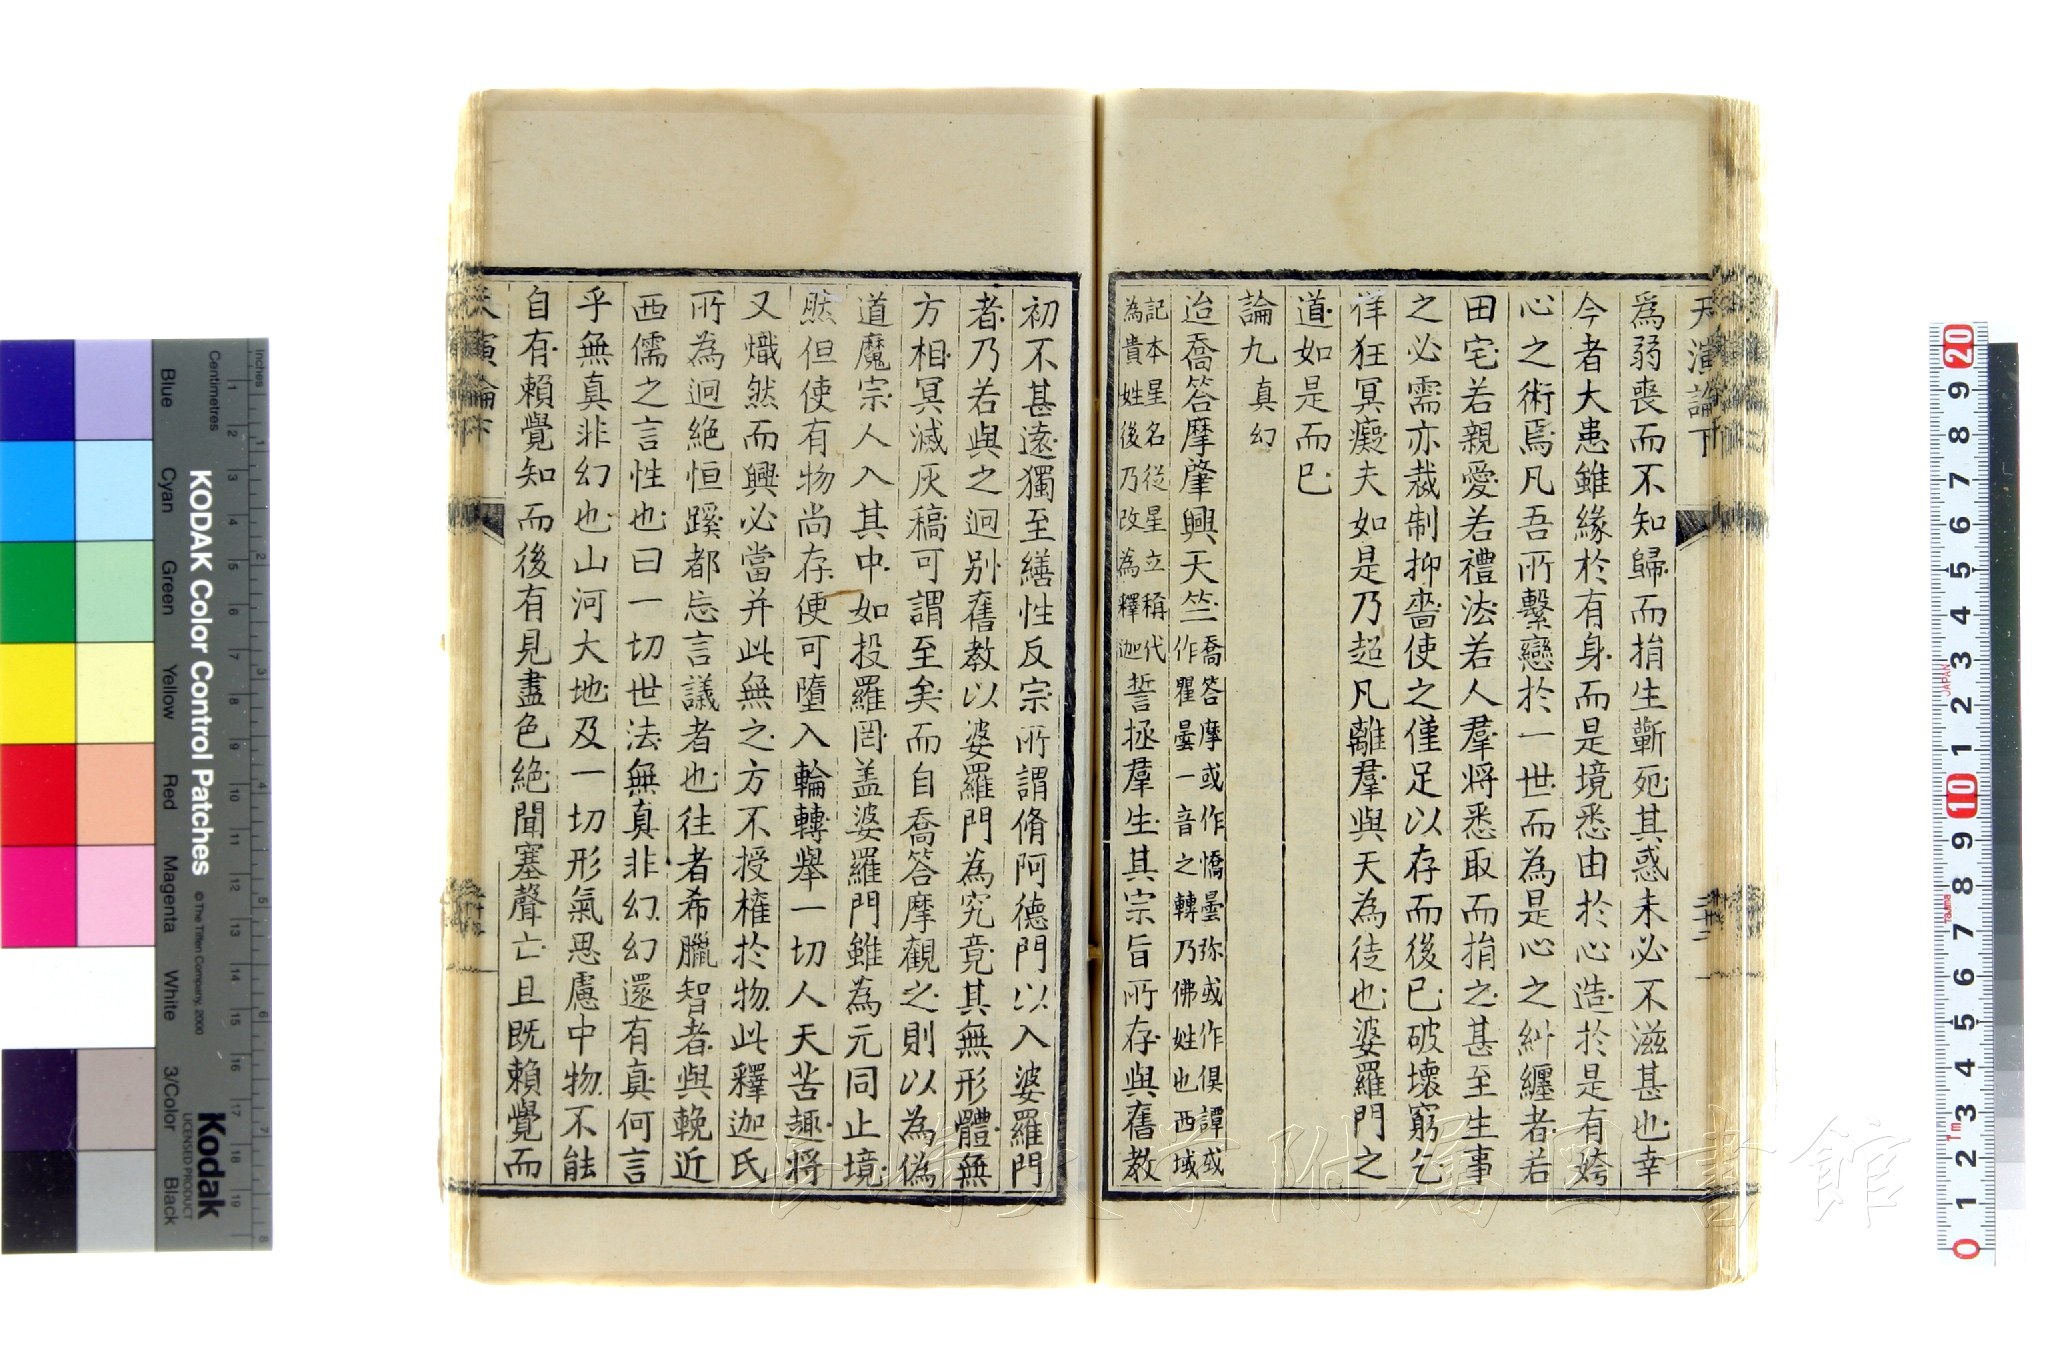 天演論下
為弱喪而不知歸而捐生蘄死其惑未必不滋甚也幸
今者大患雖緣於有身而是境悉由於心造於是有姱
心之術焉凡吾所繫戀於一世而為是心之糾纏者若
田宅若親愛若禮法若人羣將悉取而捐之甚至生事
之必需亦裁制抑嗇使之僅足以存而後已破壞窮乞
佯狂冥癡夫如是乃超凡離羣與天為徒也婆羅門之
道如是而已
論九真幻
迨喬答摩肇興天竺喬答摩或作憍曇弥或作俱譚或
一作瞿曇一音之轉乃佛姓也西域
記本星名從星立稱代
為貴姓後乃改為釋迦誓拯羣生其宗旨所存與舊教
初不甚遠獨至繕性反宗所謂脩阿德門以入婆羅門
者乃若與之迥別舊教以婆羅門為究竟其無形體無
方相冥滅灰稿可謂至矣而自喬答摩觀之則以為偽
道魔宗人入其中如投羅罔盖婆羅門雖為元同止境
然但使有物尚存便可墮入輪轉舉一切人天苦趣將
又熾然而興必當并此無之方不授權於物此釋迦氏
所為迥絕恒蹊都忘言議者也往者希臘智者與輓近
西儒之言性也曰一切世法無真非幻幻還有真何言
乎無真非幻也山河大地及一切形氣思慮中物不能
自有賴覺知而後有見盡色絕聞塞聲亡且既賴覺而
天演論下
KODAK Color Control Patches
© The Tiffen Company, 2000
Kodak
LICENSED PRODUCT
Inches
Centimetres
Blue
Cyan
Green
Yellow
Red
Magenta
White
3/Color
Black
長崎大学附属図書館
JAPAN
Tajima